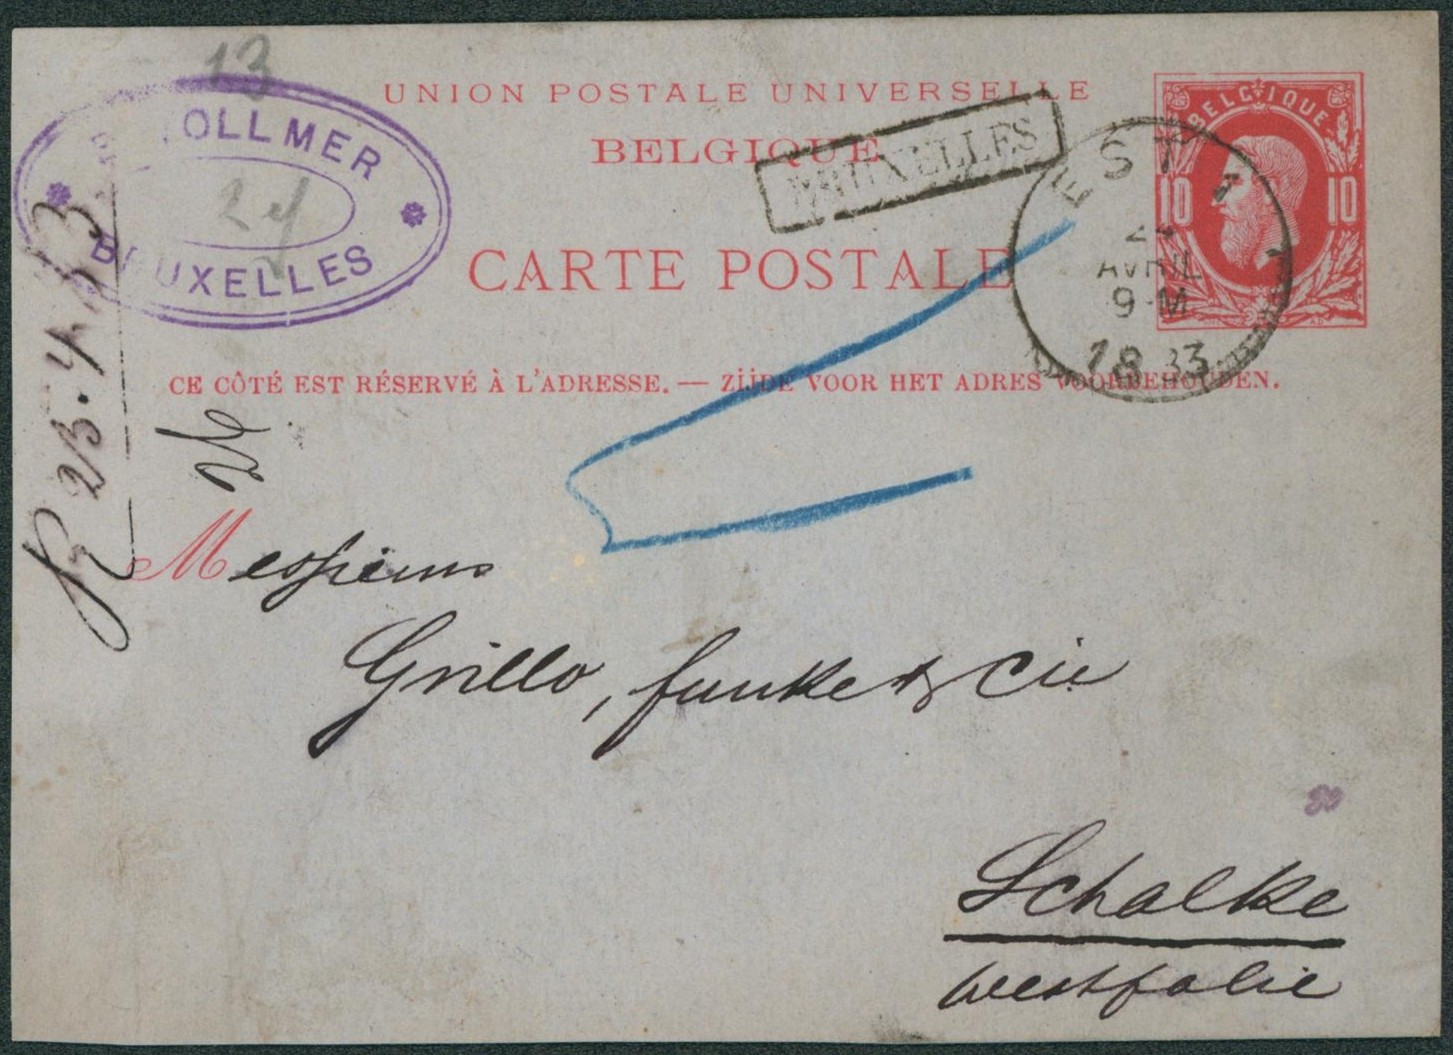 13
UNION POSTALE UNIVERSELLE
BELGIQUE
BELGIQUE
10 10
BRUXELLES
OLLMER
24
BRUXELLES
CARTE POSTALE
EST 1
AVRIL
9-M
1883
CE CÔTÉ EST RÉSERVÉ À L'ADRESSE. — ZIJDE VOOR HET ADRES VOORBEHOUDEN.
23.4.83
Messieurs
Grillo, Funke & Cie
Schalke
Westfalie